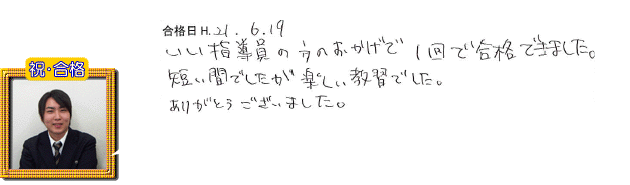 合格日 H.21.6.19
いい指導員の方のおかげで1回で合格できました。
祝・合格
短い間でしたが楽しい教習でした。
ありがとうございました。